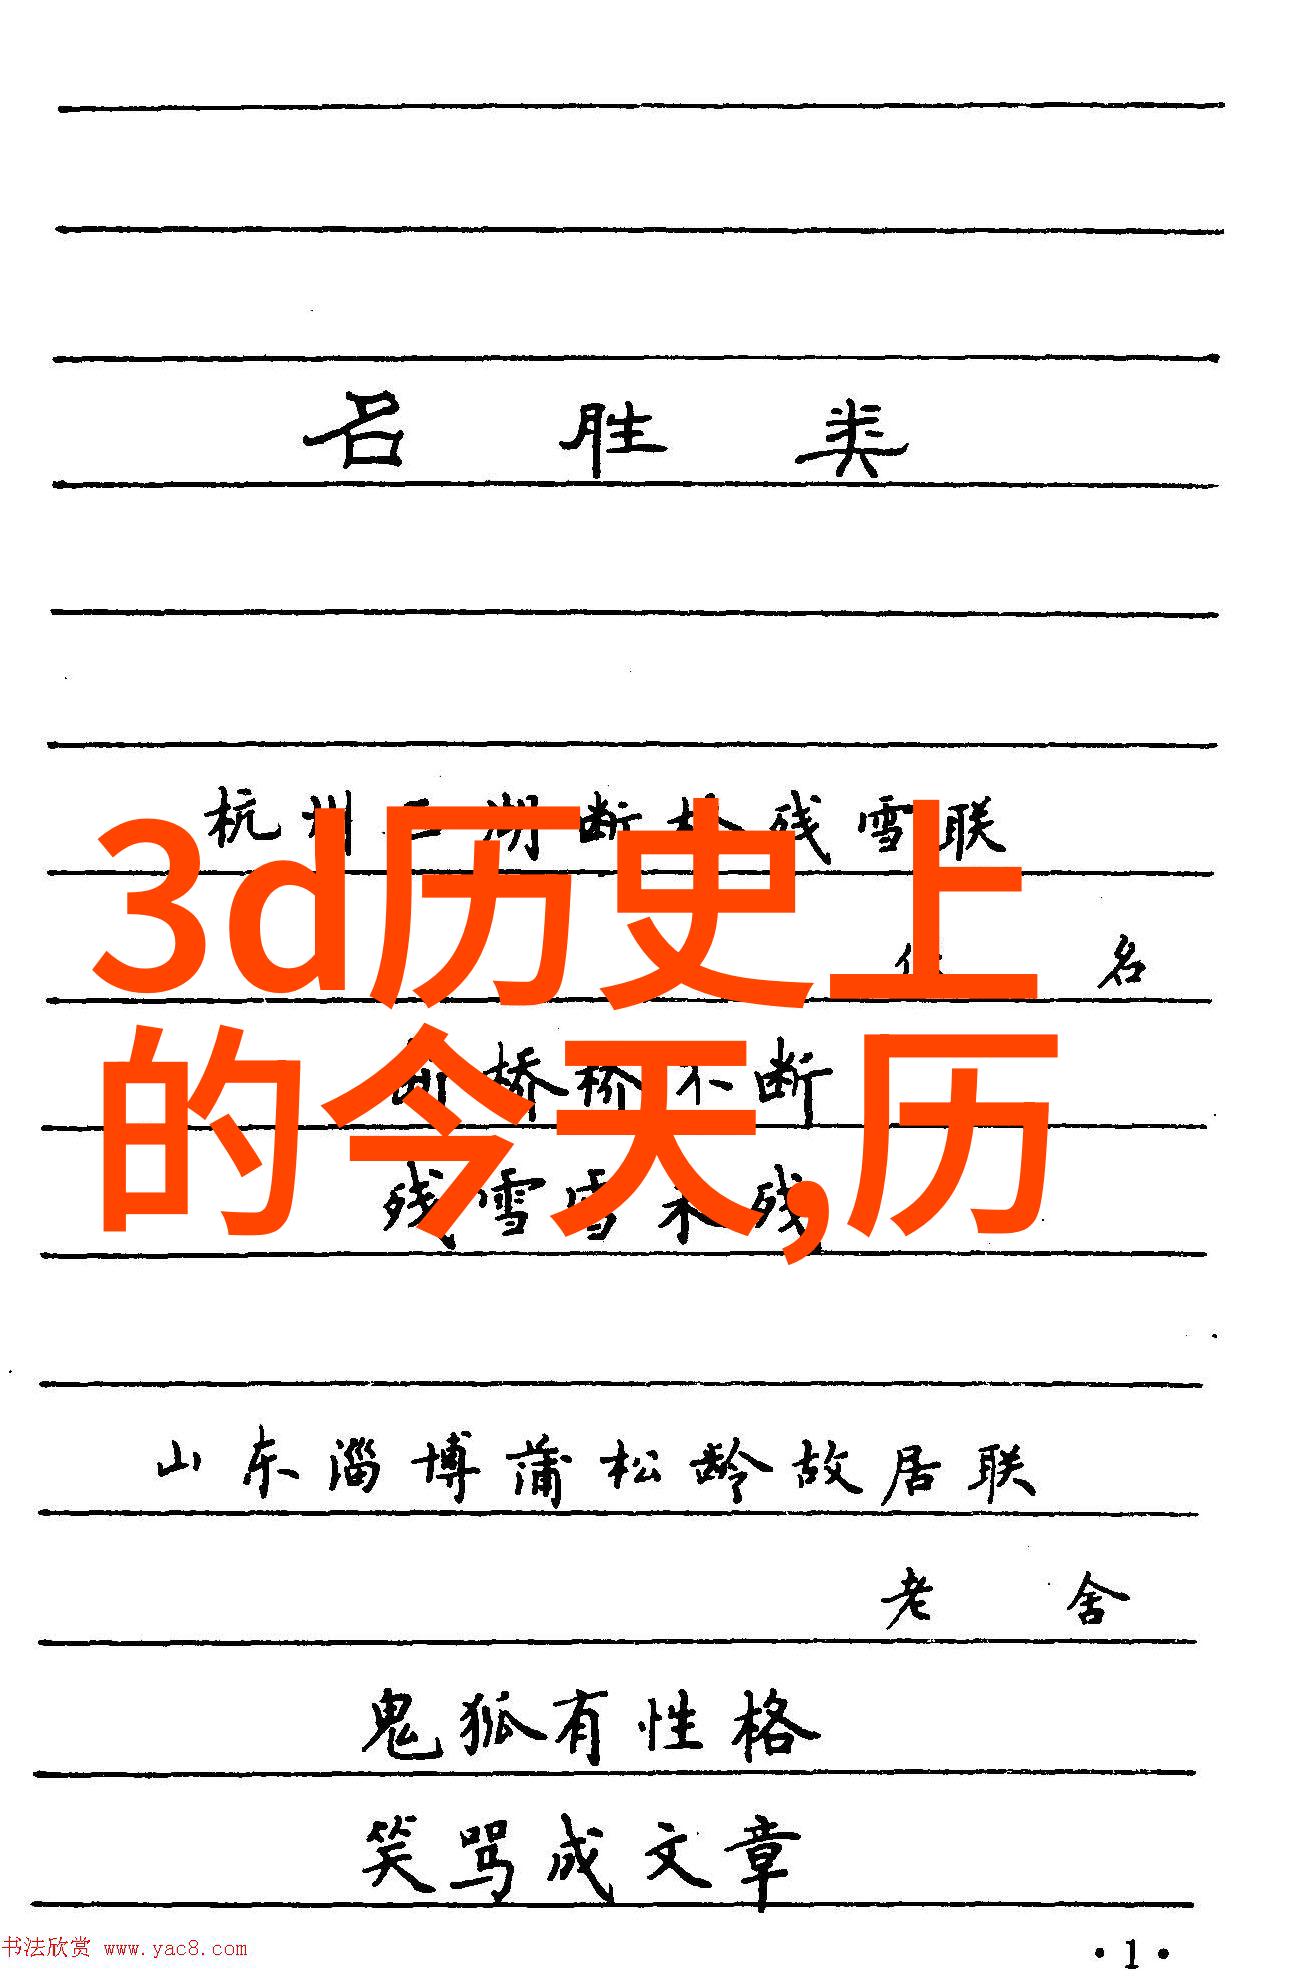 名胜类
杭州西湖断桥残雪联
3d历史上
佚名
的今天,历
断桥桥不断
残雪雪未残
山东淄博蒲松龄故居联
老舍
鬼狐有性格
笑骂成文章
书法欣赏 www.yac8.com
·1·